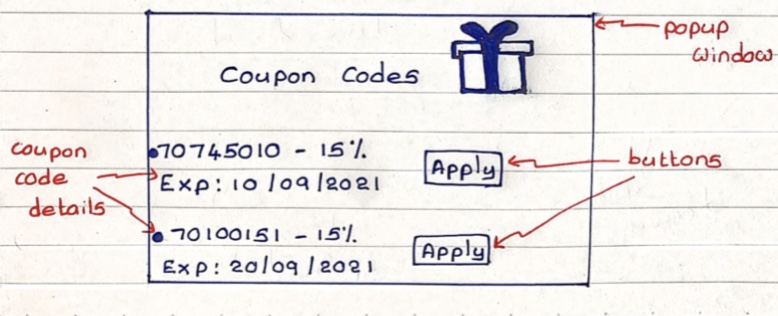 popup
window
Coupon Codes
coupon
code
details
•70745010 - 15%
Exp: 10/09/2021
Apply
buttons
• 70100151 - 15%
Exp: 20/09/2021
Apply